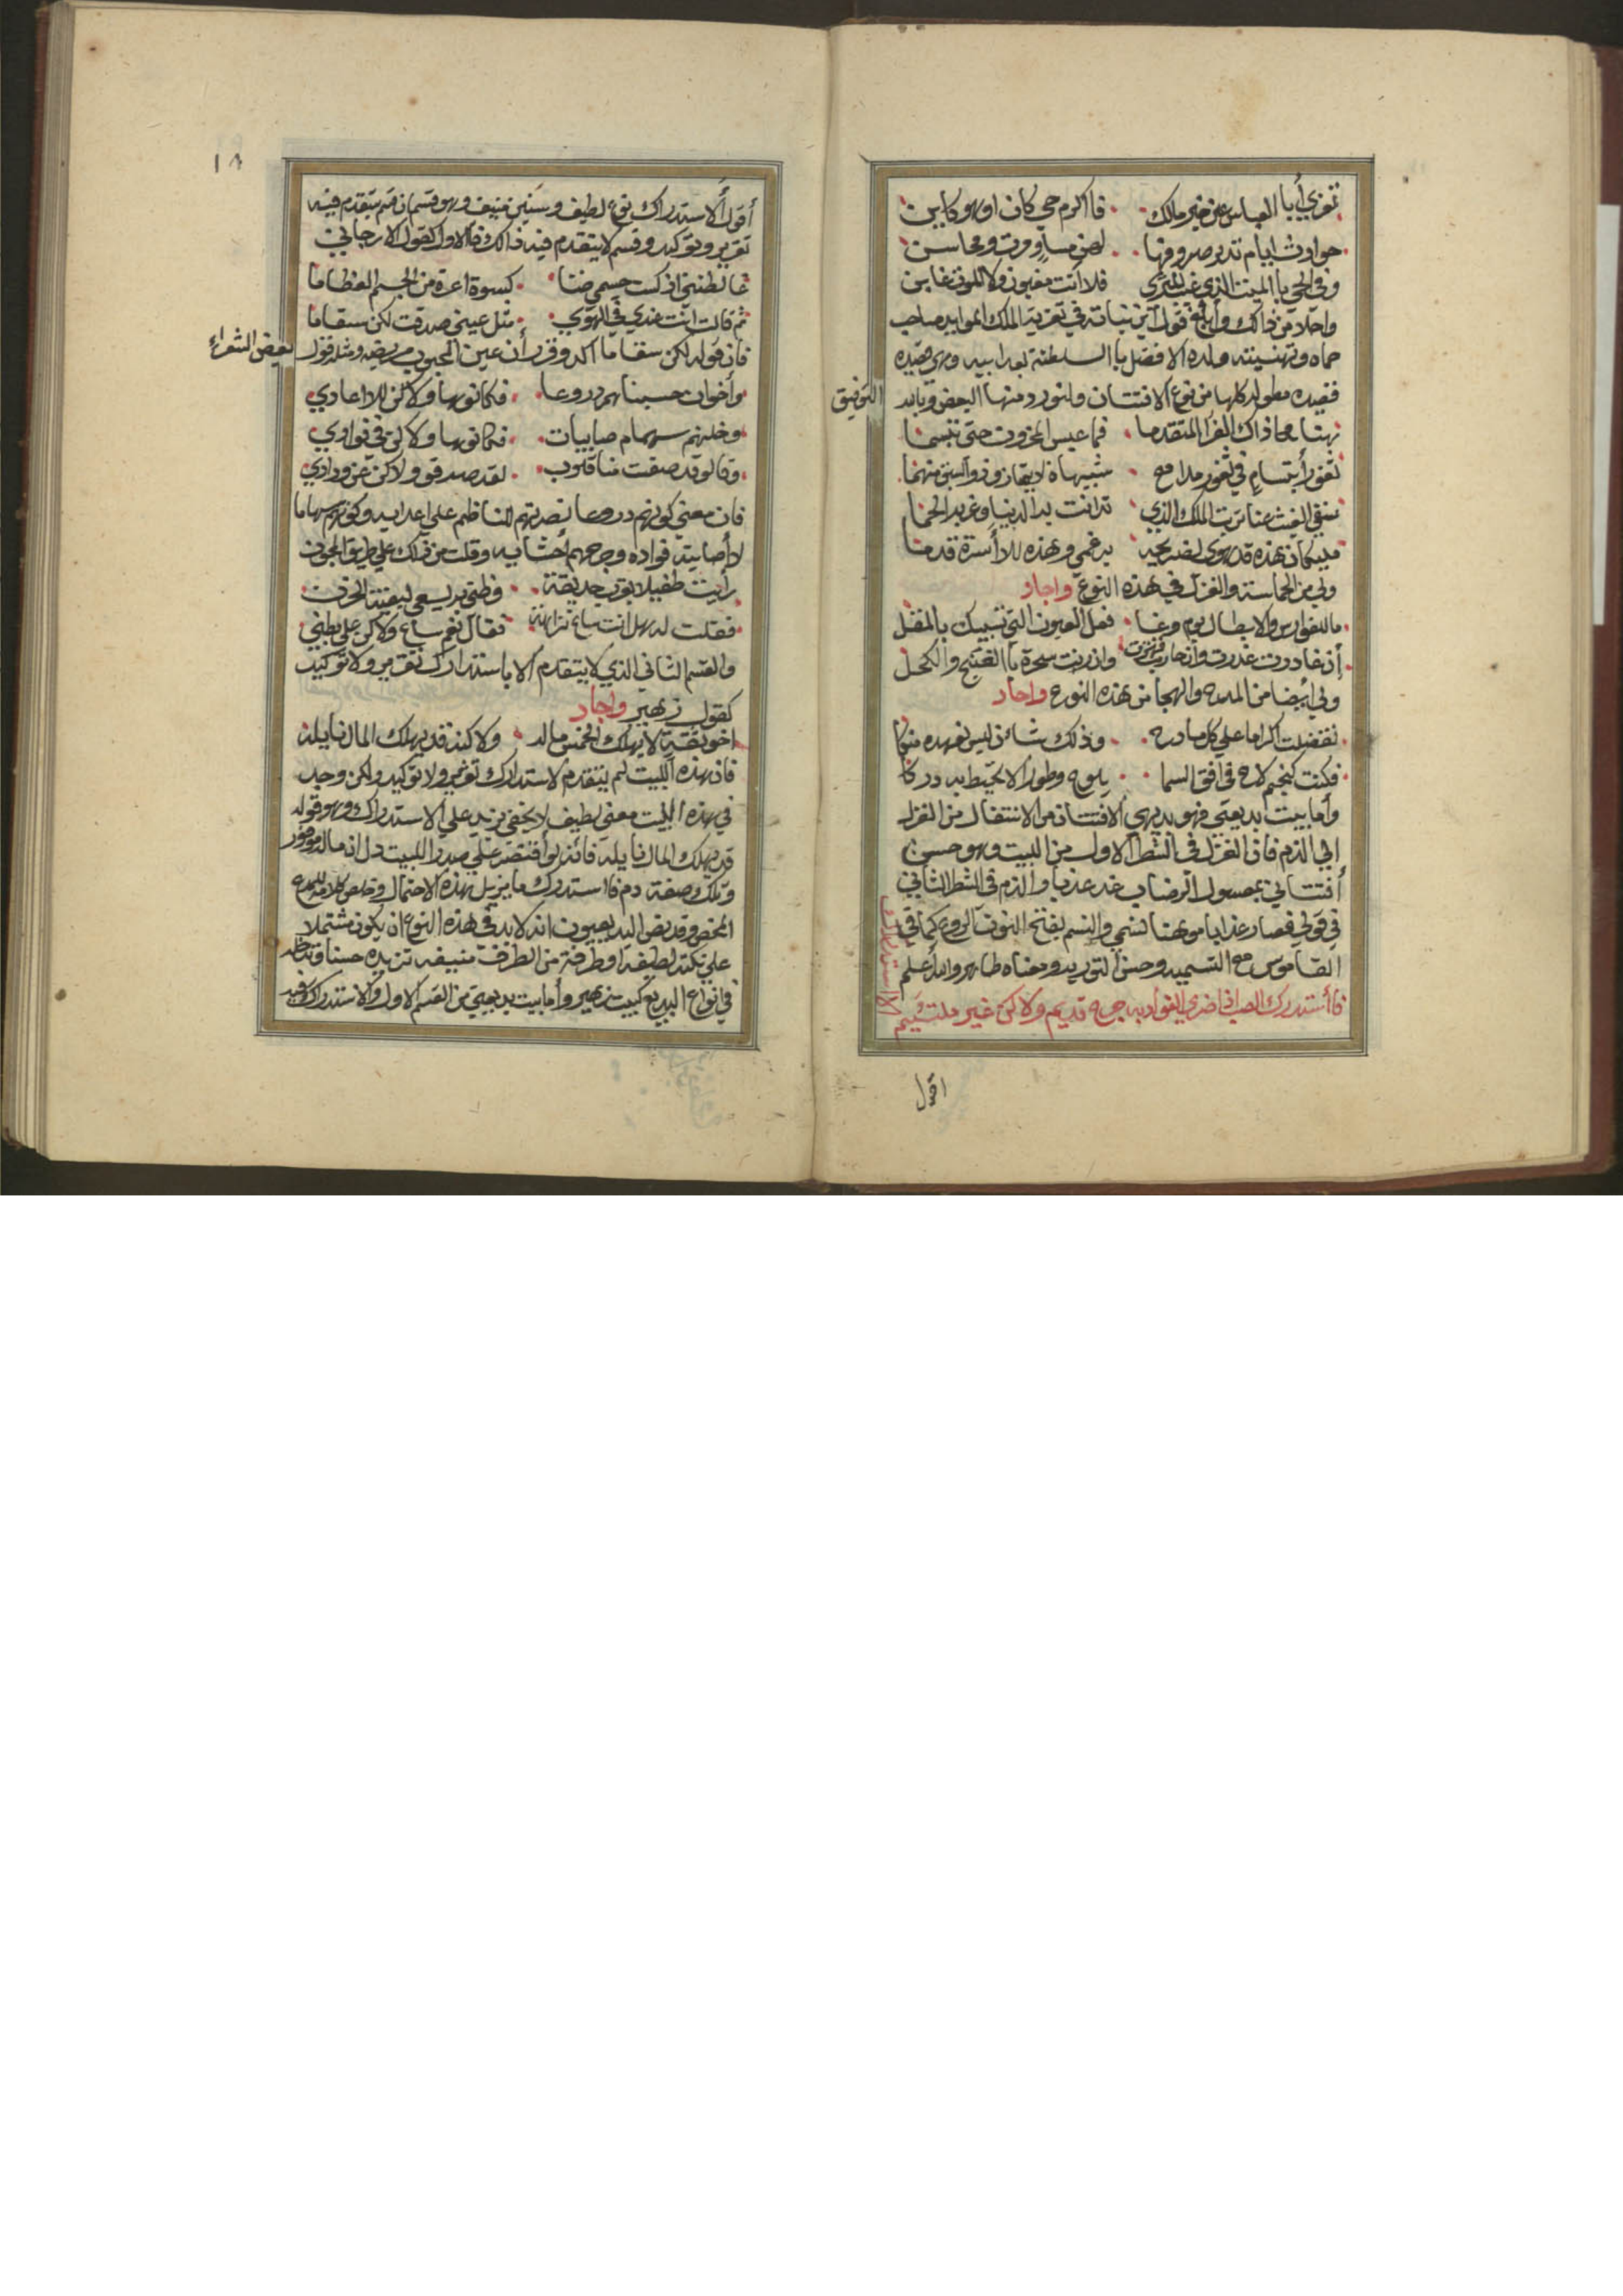 تعزي أبا العباس عن خير مالك فا اكرم حي كان اوهو كاين
حوادث ايام تدير صروفها لهن مساو ومرت ومحاسن
وفى الحي باالميت الذي غيب الثرى فلا انت مغبون ولا الموت غابن
واحلا من ذالك وأبلغ قول ابن نباته في تعزية الملك المويد صاحب
حماه وتهنيته ولده الافضل باالسلطنة بعد ابيه وهي قصيده
قصيده مطوله كلها من نوع الافتتان ولنورد منها البعض وبالله
التوفيق
هنا محا ذاك العزا المتقدما فما عبس المحزون حتى تبسما
ثغور أبتسام في ثغور مدامع شبيهاة لا يمتاز ذو السبق منهما
سقى الغيث عنا تربت الملك الذي تدانت به الدنيا وعز به الحما
مليكان هذه قد هوى لضريحيه برغمي وهذه للأسرة قد سما
ولي من الحماسة والغزل في هذه النوع واجاد
ما للفوارس والابطال يوم وغا فعل العيون التي تسبيك باالمقل
أن غادرت غدرت وان حاربت فتنت وان رنت سحرة باالغنج والكحل
ولي أيضا من المدح والهجا من هذه النوع واجاد
تفضلت اكراما على كل مادح وذلك شائن ليس نعهده منكا
فكنت كنجم لاح فى افق السما يلوح وطورا لا يحيط به دركا
وأما بيت بديعتي فهو بديهي الافتتان من الانتقال من الغزل
الي الذم فان الغزل فى الشطر الاول من البيت وهو حسن
أفتتاني بمعسول الرضاب غد عذبا والذم فى الشطر الثاني
في قولي فصار عذابا موهنا لنسمي والنسم بفتح النون الروح كما في
القاموس مع التسميه وحسن التوريه ومعناه ظاهر والله أعلم
الاستدراك
فاأستدرك الصب اذا ضرى الفوأد به جرح قديم ولاكن غير ملتئيم
اقول
١٨
أقول ألاستدراك نوع لطيف وسنين منيف وهو قسمان قسم يتقدم فيه
تقرير وتوكيد وقسم لا يتقدم فيه ذالك فاالاول كقول الارجاني
غالطتني اذ كست جسمي ضنا كسوة اعرة من الجسم العظاما
ثم قالت انت عندي في الهوي مثل عيني صدقت لكن سقاما
فان قوله لكن سقاما اكد وقرر أن عين المحبوب مريضه ومثله قول
بعض الشعراء
وأخوان حسبناهم دروعا فكانوها ولاكن للاعادي
وخلتهم سهام صايبات فكانوها ولاكن في فوادي
وقالو قد صفت منا قلوب لقد صدقو ولاكن عن ودادي
فان معنى كونهم دروعا نصرتهم للناظم على اعدايه وكونهم سهاما
لأصابيت فواده وجرحهم أحشايه وقلت من ذلك على طريق المجون
رأيت طفيلا بقرب حديقة وظني به يسعى ليغتنا الحزن
فقلت له هل انت ساع نزاهة فقال نعم ساع ولاكن على بطني
والقسم الثاني الذي لا يتقدم الا باستدراك تقرير ولا توكيد
كقول زهير واجاد
اخو ثقة لا يهلك الخمر ماله ولاكنه قد يهلك المال نايله
فان هذه البيت لم يتقدم لاستدراك تقرير ولا توكيد ولكن وجد
في هذه البيت معنى لطيف لا يخفى يزيد على الاستدراك وهو قوله
قد يهلك المال نايله فائنه لو أقتصر على صدر البيت دل ان ماله موفور
وتلك صفة دم فا استدرك ما يزيل هذه الاحتمال وخلص كلامه للمدح
المحض وقد نص البديعيون انه لا بد فى هذه النوع ان يكون مشتملا
على نكته لطيفه او طرفة من الطرف منيفه تزيده حسنا وتدخله
في انواع البديع كبيت زهير وأما بيت بديعيتي من القسم الاول والاستدراك فيه